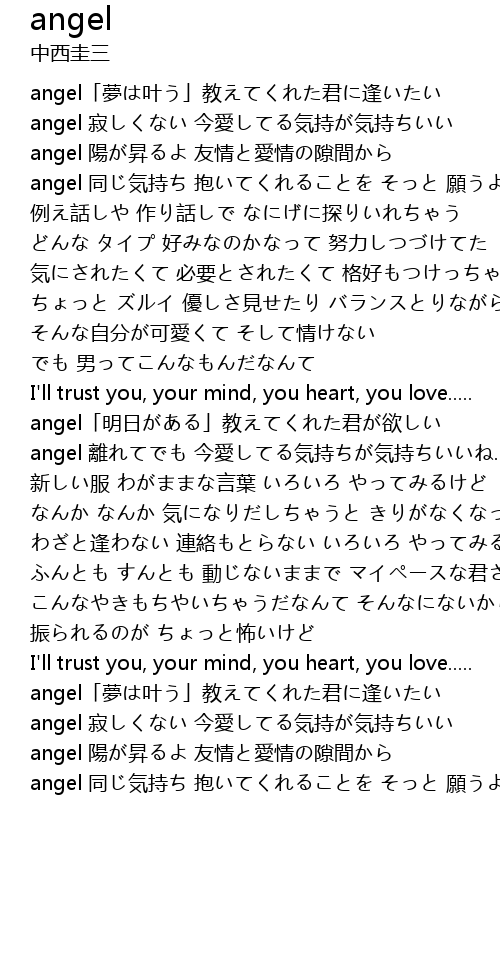 angel
中西圭三
angel「夢は叶う」教えてくれた君に逢いたい
angel 寂しくない 今愛してる気持が気持ちいい
angel 陽が昇るよ 友情と愛情の隙間から
angel 同じ気持ち 抱いてくれることを そっと 願うよ
例え話しや 作り話しで なにげに探りいれちゃう
どんな タイプ 好みなのかなって 努力しつづけてた
気にされたくて 必要とされたくて 格好もつけっちゃ
ちょっと ズルイ 優しさ見せたり バランスとりながら
そんな自分が可愛くて そして情けない
でも 男ってこんなもんだなんて
I'll trust you, your mind, you heart, you love.....
angel「明日がある」教えてくれた君が欲しい
angel 離れてでも 今愛してる気持ちが気持ちいいね..
新しい服 わがままな言葉 いろいろ やってみるけど
なんか なんか 気になりだしちゃうと きりがなくなっ
わざと逢わない 連絡もとらない いろいろ やってみる
ふんとも すんとも 動じないままで マイペースな君さ
こんなやきもちやいちゃうだなんて そんなにないか
振られるのが ちょっと怖いけど
I'll trust you, your mind, you heart, you love.....
angel「夢は叶う」教えてくれた君に逢いたい
angel 寂しくない 今愛してる気持が気持ちいい
angel 陽が昇るよ 友情と愛情の隙間から
angel 同じ気持ち 抱いてくれることを そっと 願うよ